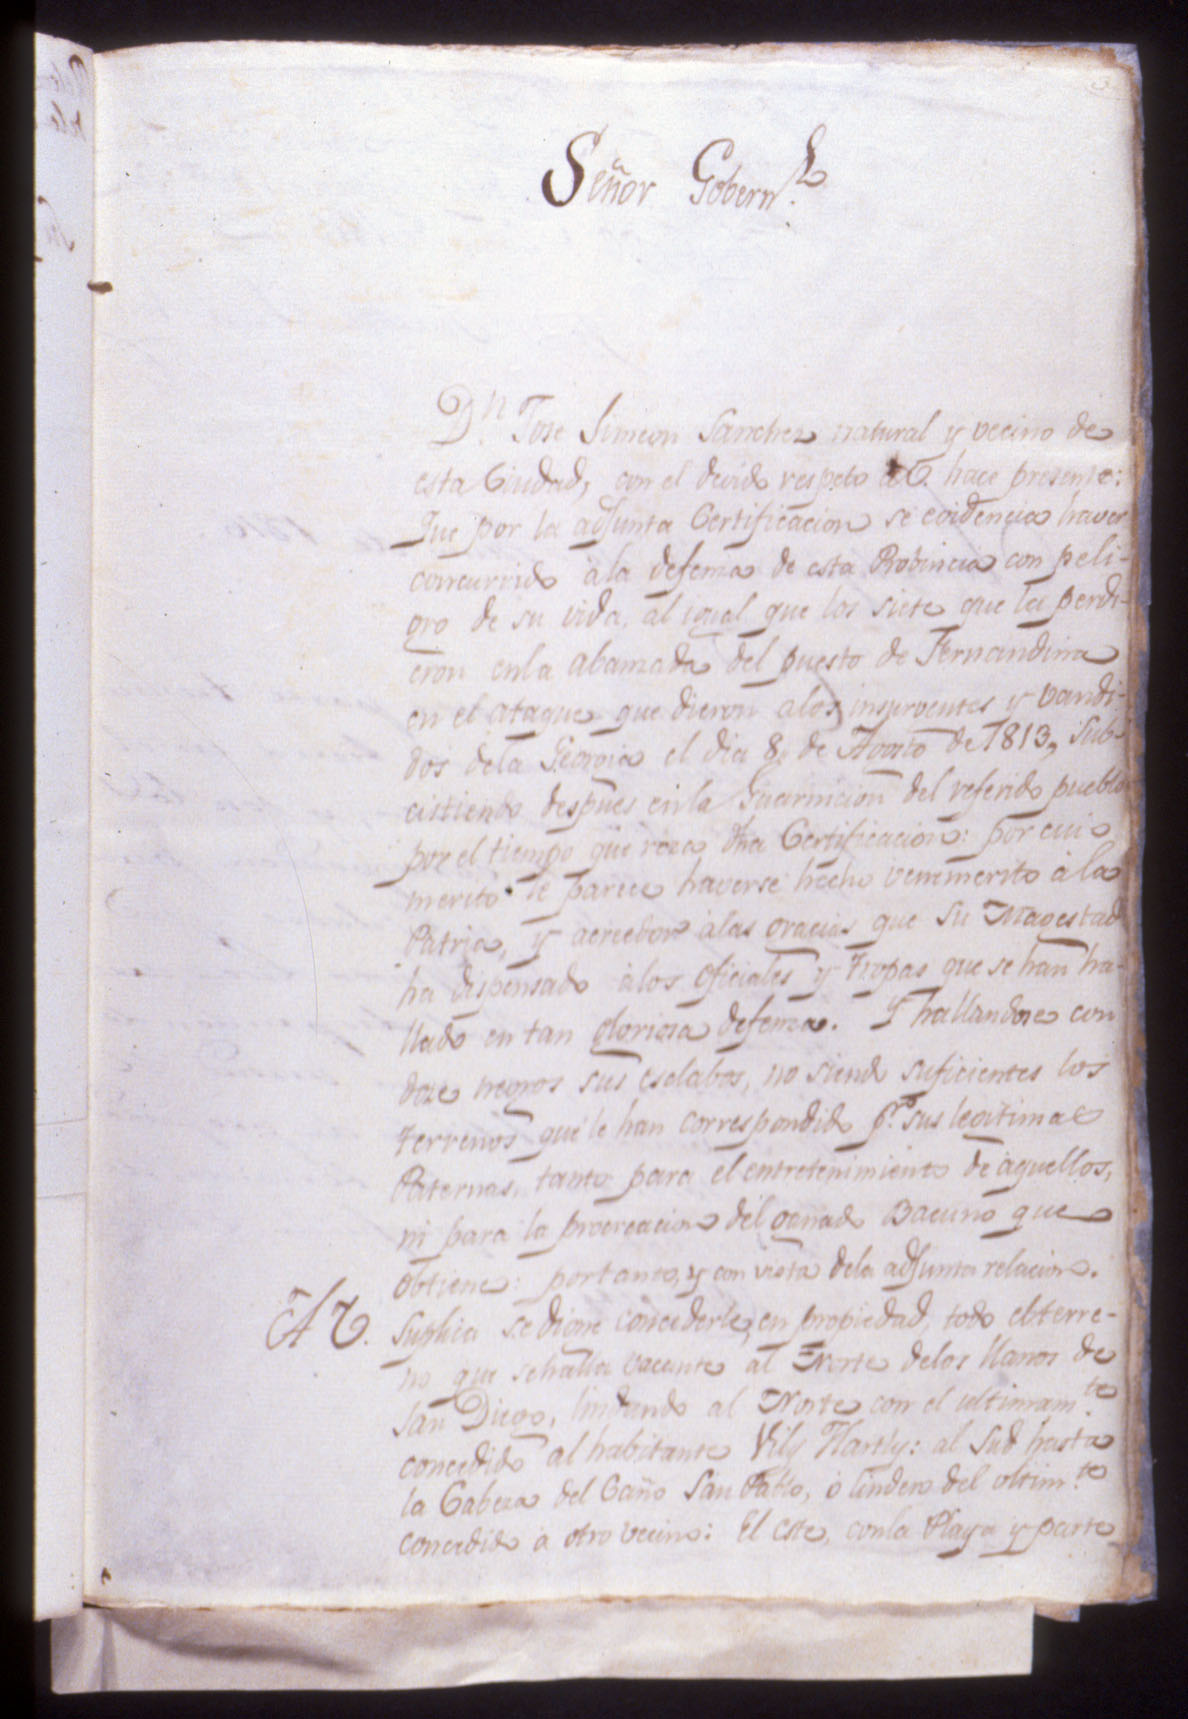 Señor Gobern.ʳ
D.ⁿ Jose Simeon Sanchez natural y vecino de
esta Ciudad, con el devido respeto á V. hace presente:
Que por la adjunta Certificacion se evidencia haver
concurrido à la defensa de esta Probincia con peli-
gro de su vida, al igual que los siete que la perdi-
eron en la abanzada del puesto de Fernandina
en el ataque que dieron a los insurgentes y vandi-
dos dela Georgia el dia 8,, de Agosto de 1813,, sub-
cistiendo despues en la Guarnicion del referido pueblo
por el tiempo que reza dha Certificacion: por cuio
merito le parece haverse hecho venemerito à la
Patria, y acreedor àlas gracias que Su Magestad
ha dispensado àlos oficiales y tropas que se han ha-
llado en tan gloriosa defensa. Y hallandose con
doze negros sus esclabos, no siend suficientes los
terrenos que le han correspondido p.ʳ sus legitimas
Paternas, tanto para el entretenimiento de aquellos,
ni para la procreacion del ganado Bacuno que
obtiene: por tanto, y con vista dela adjunta relacion.
A V. Suplica se digne concederle, en propiedad, todo el terre-
no que se halla vacante al Norte delos llanos de
San Diego, lindando al Norte con el ultimam.ᵗᵉ
concedido al habitante Vily Hartly: al Sud hasta
la Cabeza del Caño San Pablo, o lindero del ultim.ᵗᵉ
concedido a otro vecino: El este, con la Playa y parte